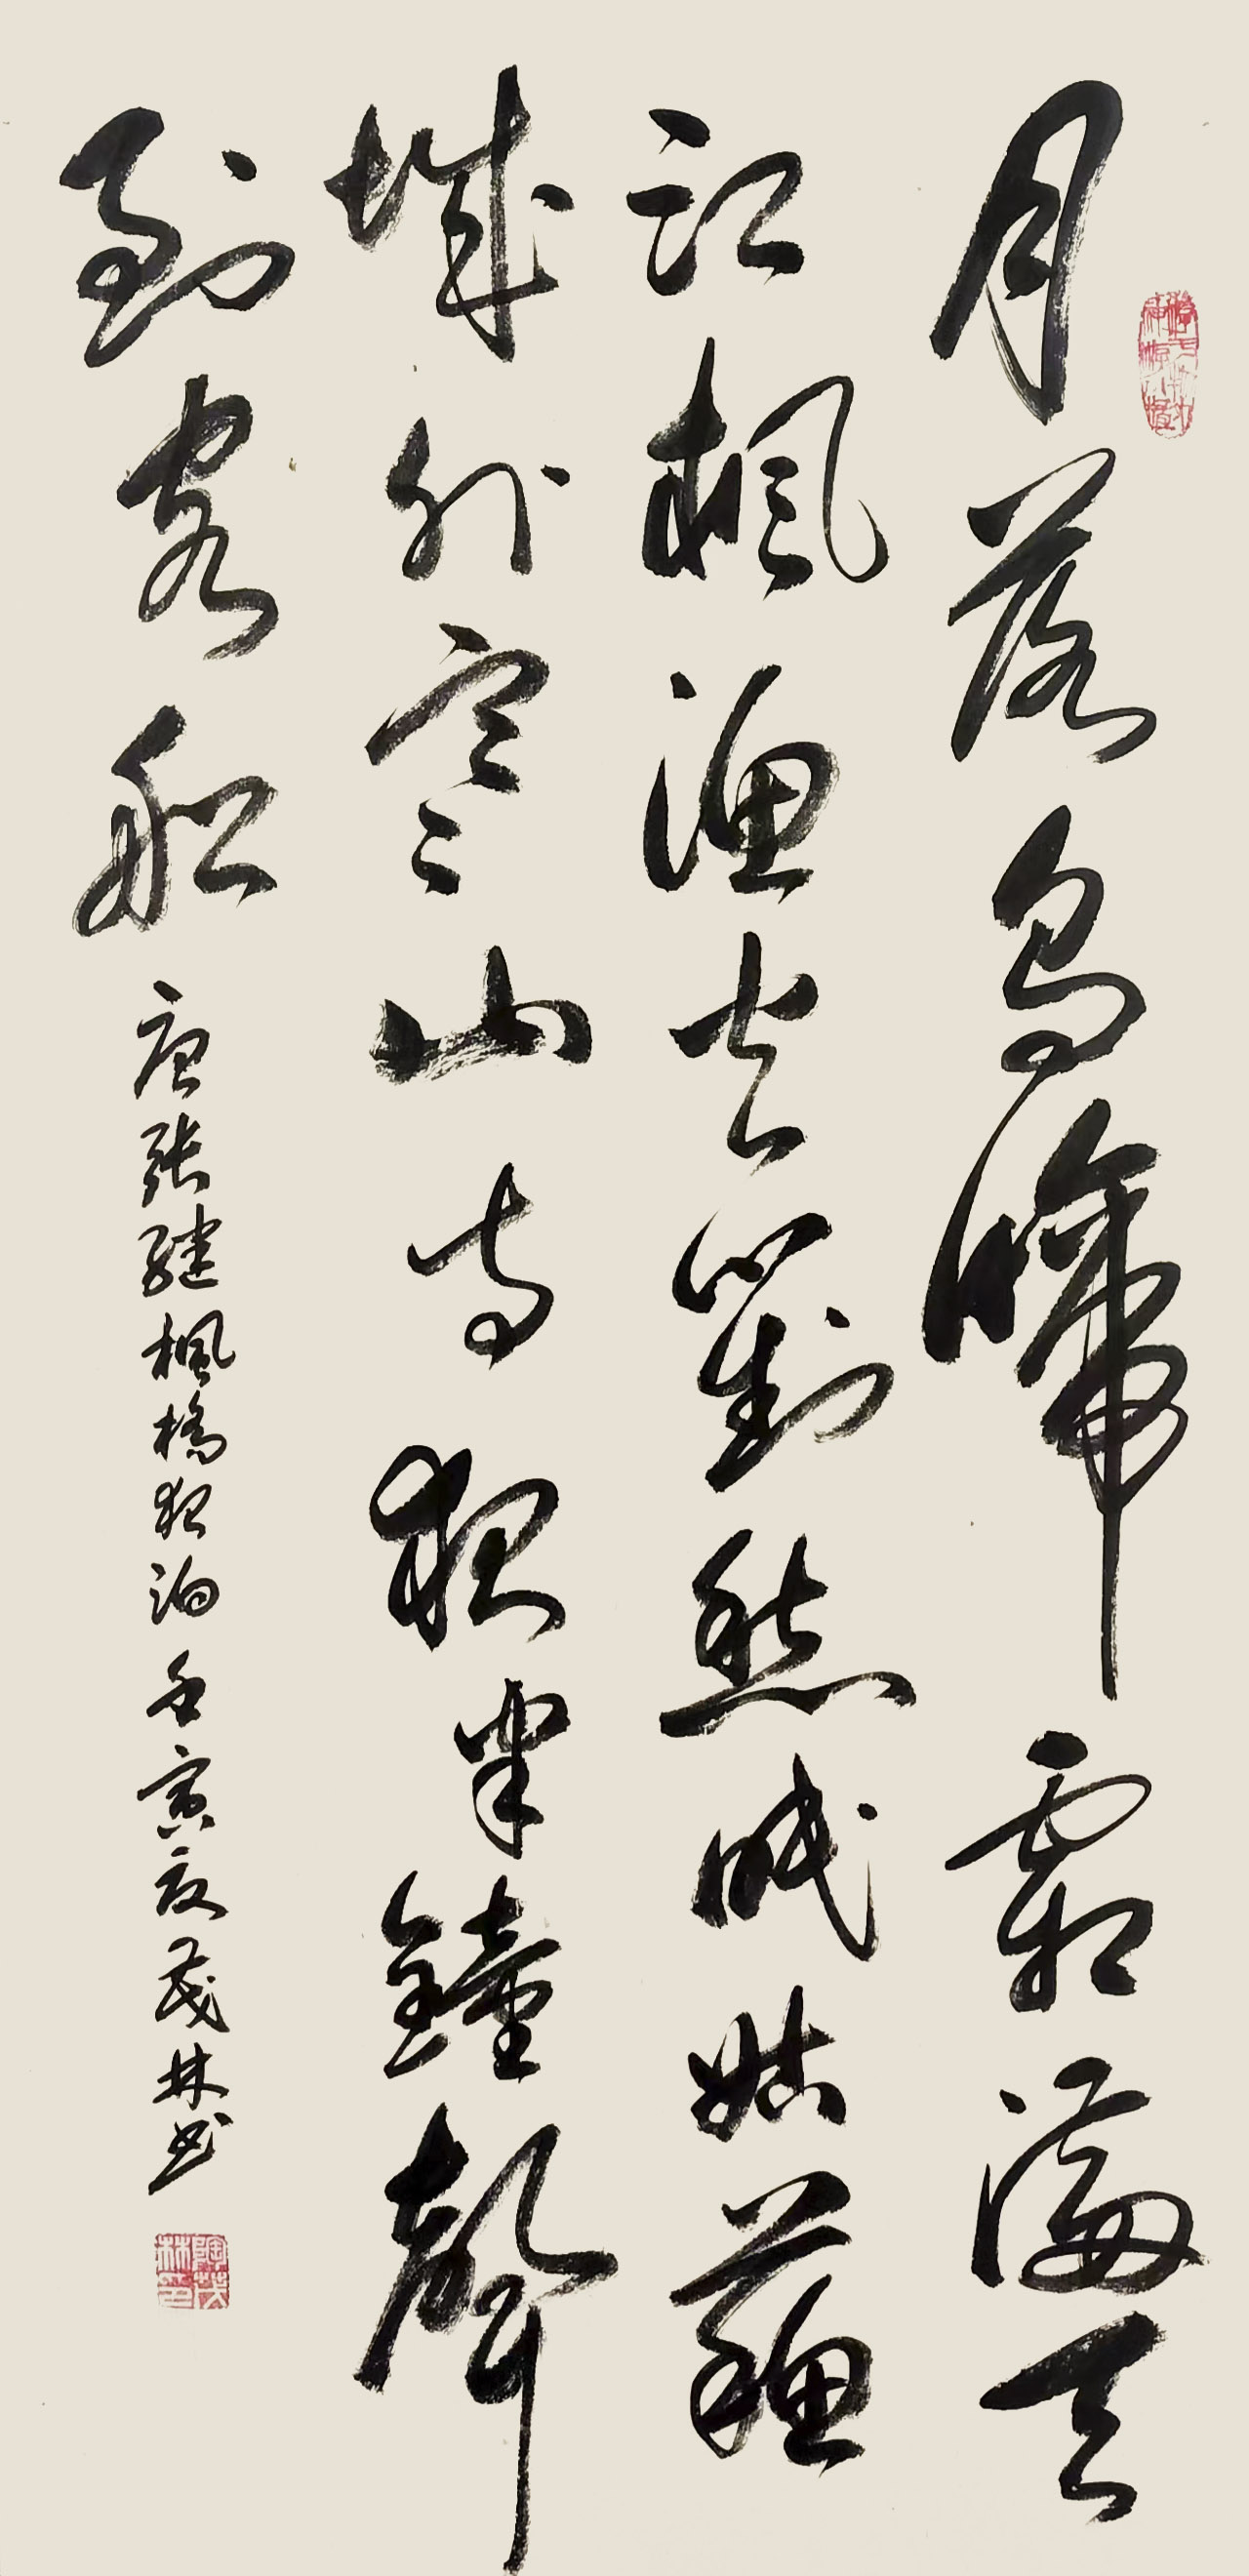 月落烏啼霜滿天
江楓漁火對愁眠姑蘇
城外寒山寺夜半鐘聲
到客船
唐張繼楓橋夜泊壬寅夏茂林書
陶茂林印